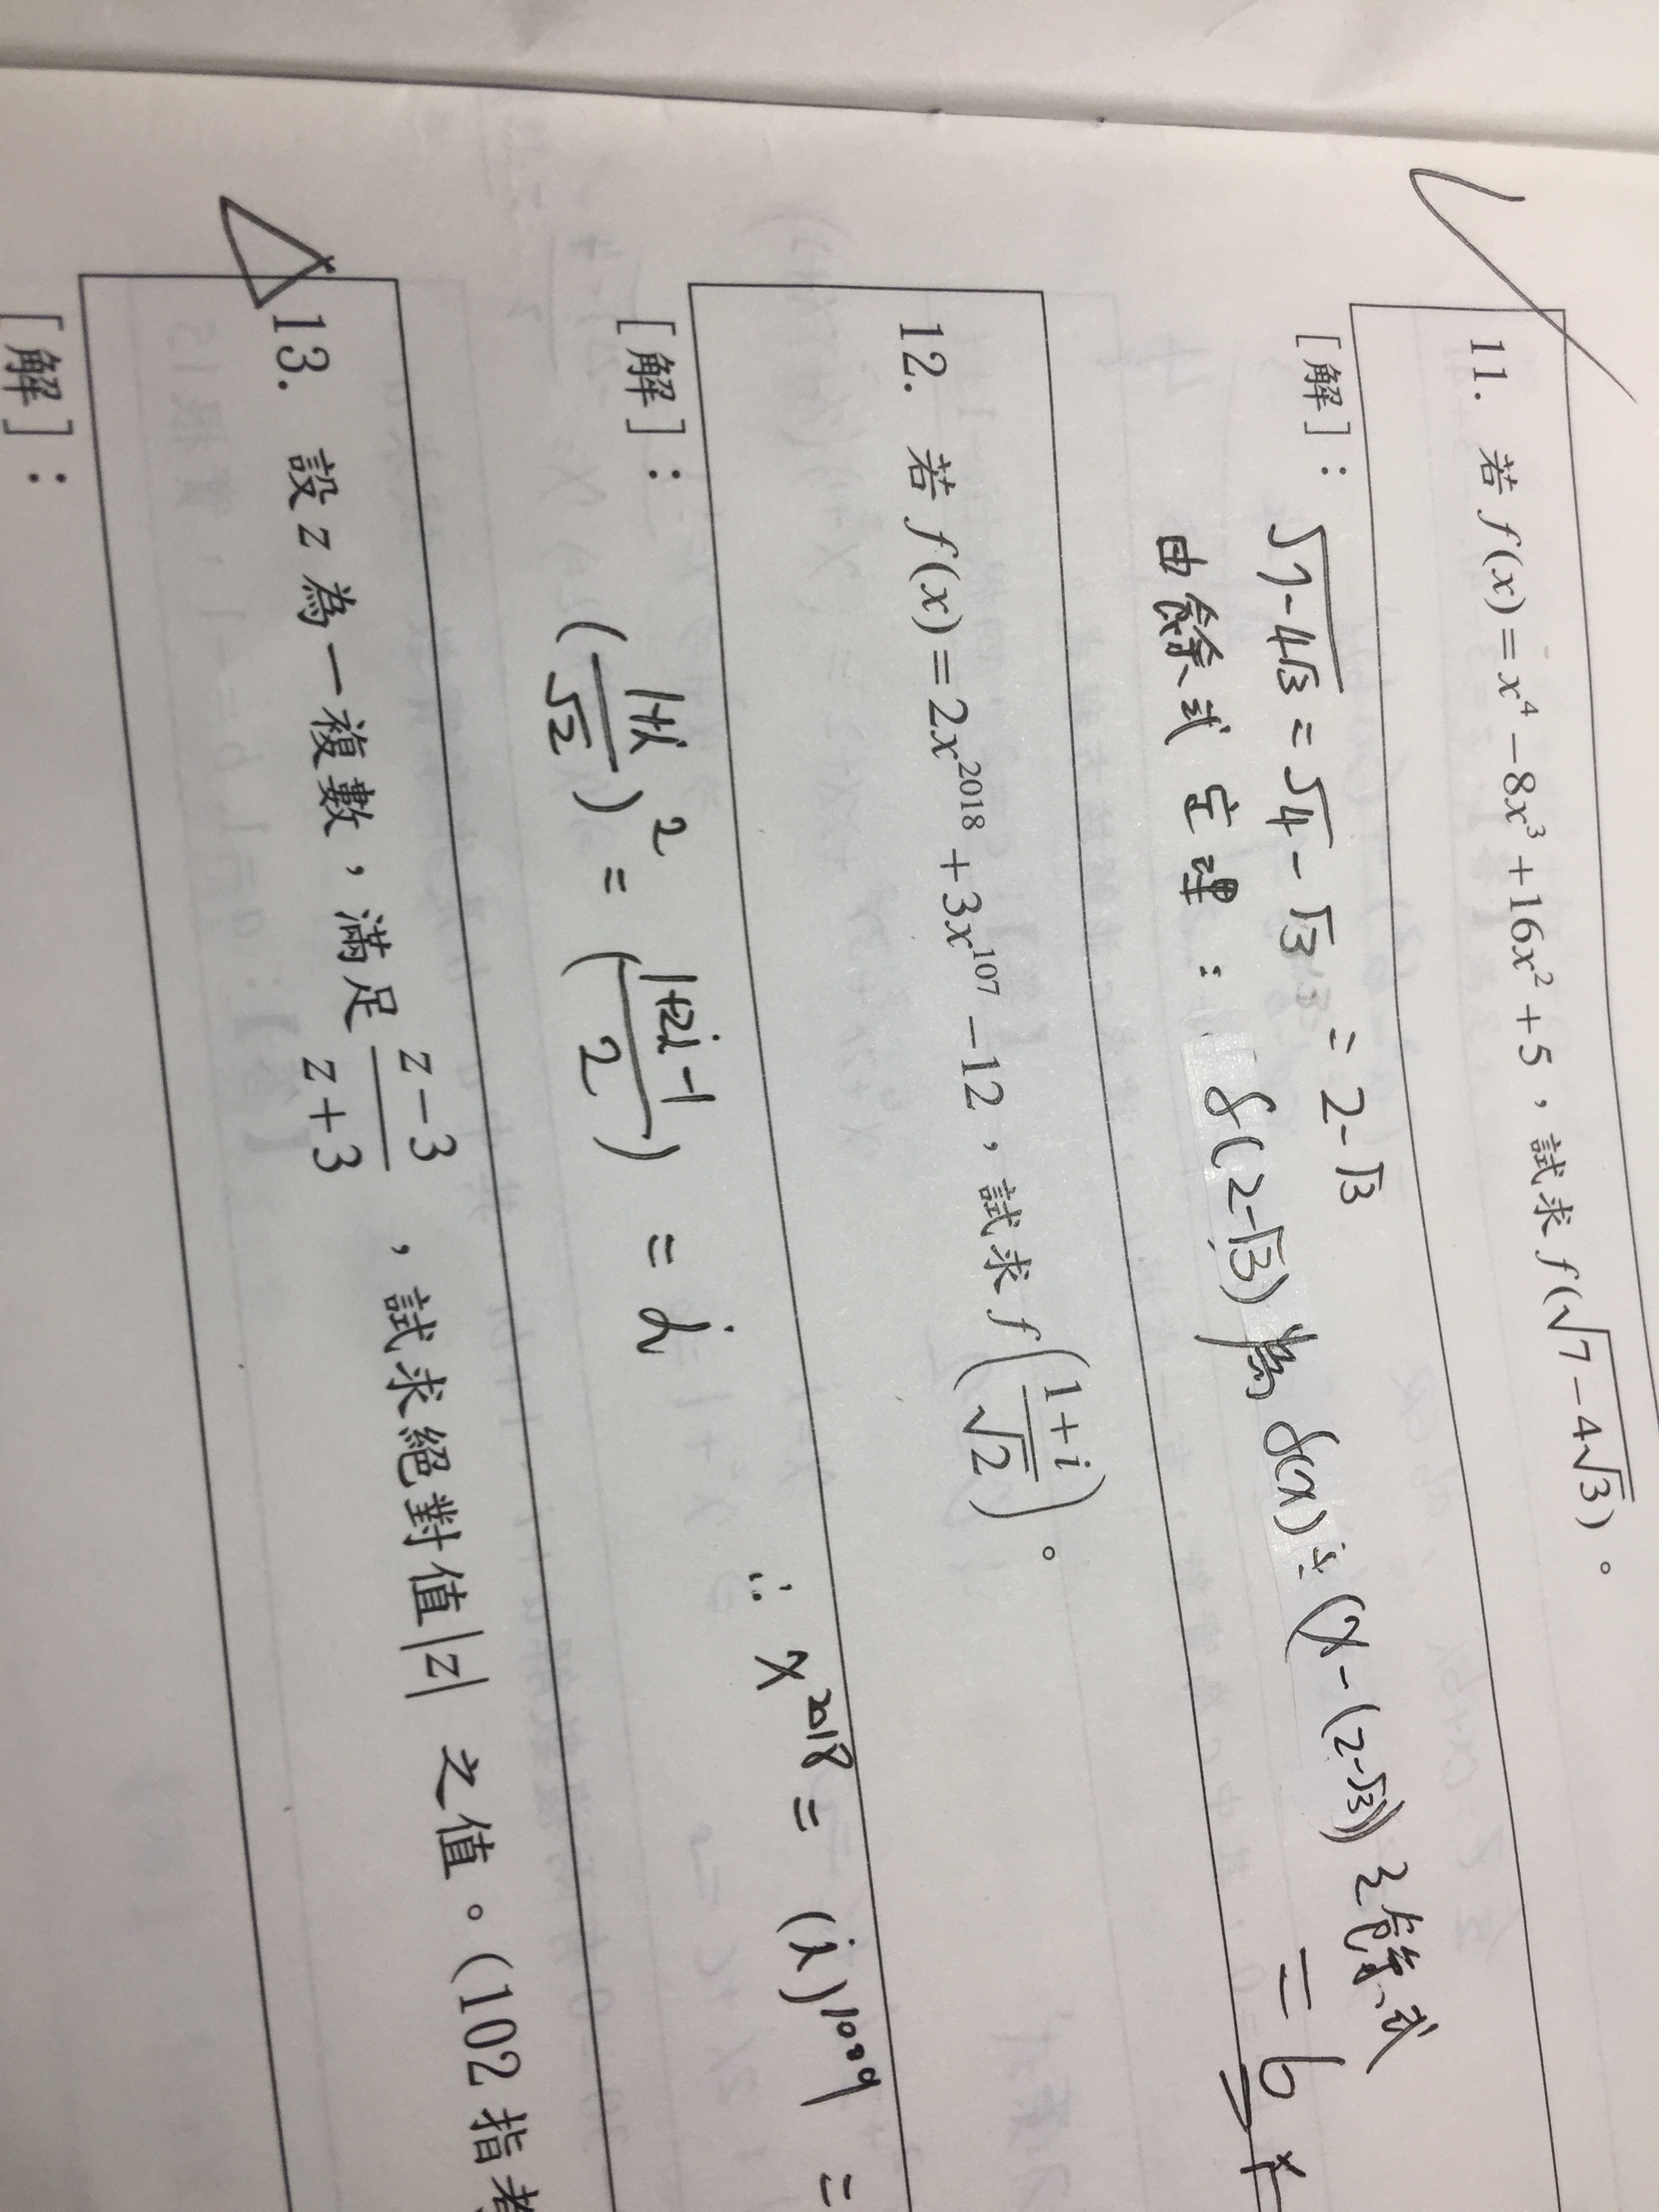 11. 若 f(x)=x⁴-8x³+16x²+5,試求 f(√(7-4√3))。
[解]: √(7-4√3) = √4-√3 = 2-√3
由餘式定理: f(2-√3) 為 f(x)÷(x-(2-√3)) 之餘式
= 6
12. 若 f(x)=2x²⁰¹⁸+3x¹⁰⁷-12,試求 f((1+i)/√2)。
[解]: ((1+i)/√2)² = ((1+2i-1)/2) = i ∴ x²⁰¹⁸ = (i)¹⁰⁰⁹ =
13. 設 z 為一複數,滿足 (z-3)/(z+3) ,試求絕對值|z| 之值。(102 指考
[解]: